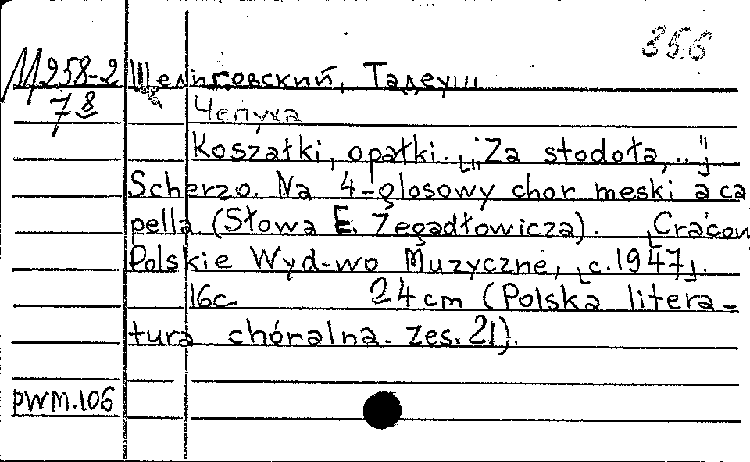 35.6
М 258-2 Щелиговский, Тадеуш
7 8 Чепуха
Koszałki, opałki. [„Za stodołą,.."]
Scherzo. Na 4-glosowy chor męski a ca
pella. (Słowa E. Zegadłowicza). [Cracow,
Polskie Wyd-wo Muzyczne, [c.1947].
16c. 24 cm (Polska litera-
tura chóralna. Zes. 21).
PWM.106